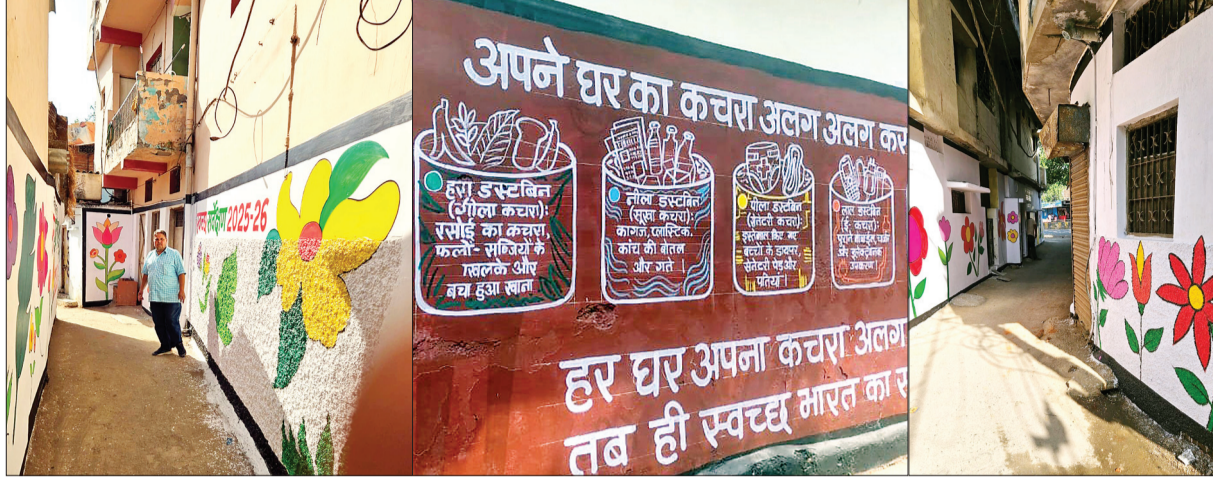 सर्वेक्षण 2025-26
अपने घर का कचरा अलग अलग कर
हरा डस्टबिन
(गीला कचरा):
रसोई का कचरा,
फलों- सब्जियों के
छिलके और
बचा हुआ खाना
नीला डस्टबिन
(सूखा कचरा):
कागज, प्लास्टिक,
कांच की बोतल
और गत्ते ।
पीला डस्टबिन
(सेनेटरी कचरा):
इस्तेमाल किए गए
बच्चों के डायपर,
सेनेटरी पेड और
पट्टियां ।
लाल डस्टबिन
(ई- कचरा):
पुराने मोबाईल, चार्जर
और इलेक्ट्रॉनिक
उपकरण ।
हर घर अपना कचरा अलग
तब ही स्वच्छ भारत का स